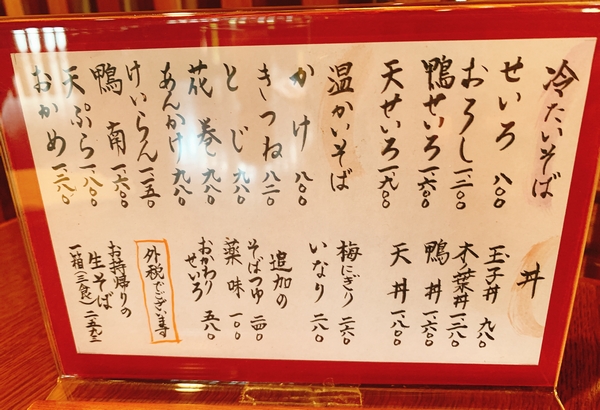 冷たいそば
せいろ 八〇〇
おろし 一、二〇〇
鴨せいろ 一、六〇〇
天せいろ 一、九〇〇
温かいそば
かけ 八〇〇
きつね 八二〇
とじ 九八〇
花巻 九八〇
あんかけ 九八〇
けいらん 一、一五〇
鴨南 一、六〇〇
天ぷら 一、八〇〇
おかめ 一、二八〇
丼
玉子丼 九八〇
木葉丼 一、二八〇
鴨丼 一、六〇〇
天丼 一、八〇〇
梅にぎり 二六〇
いなり 二八〇
追加の
そばつゆ 二四〇
薬味 一〇〇
おかわり
せいろ 五八〇
外税でございます
お持帰りの
生そば
一箱(三食) 二、五九二